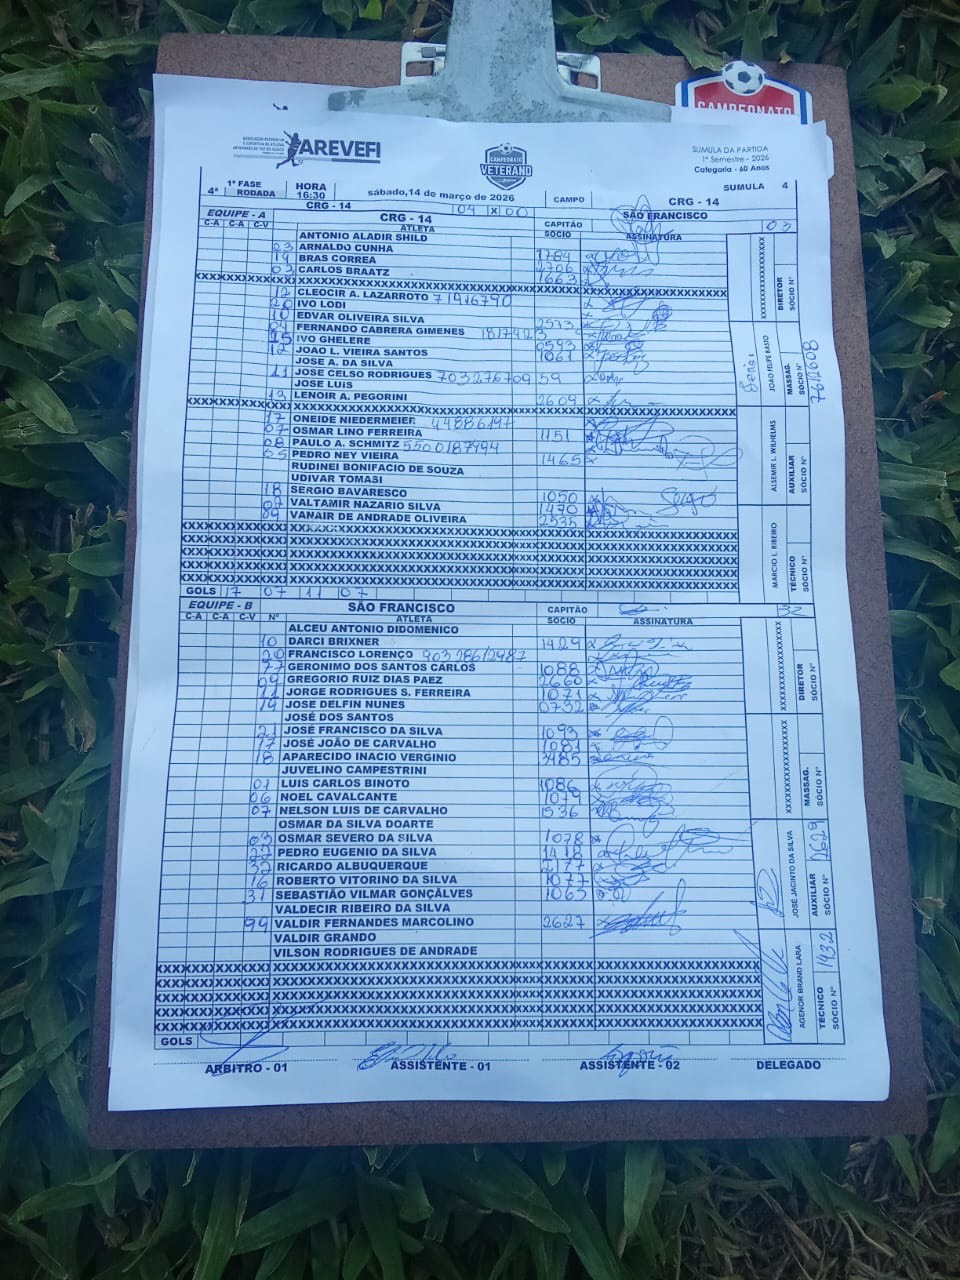 CAMPEONATO
ASSOCIAÇÃO RECREATIVA
E ESPORTIVA DE ATLETAS
VETERANOS DE FOZ DO IGUAÇU
AREVEFI
CAMPEONATO
VETERANO
SUMULA DA PARTIDA
1º Semestre - 2026
Categoria - 60 Anos
SUMULA 4
4ª 1ª FASE RODADA HORA 16:30 sábado,14 de março de 2026 CAMPO CRG - 14
CRG - 14 04 X 00 SÃO FRANCISCO
EQUIPE - A CRG - 14 CAPITÃO 03
C-A C-A C-V ATLETA SÓCIO ASSINATURA
ANTONIO ALADIR SHILD
03 ARNALDO CUNHA 1784
14 BRAS CORREA
03 CARLOS BRAATZ
CLEOCIR A. LAZARROTO 71916790
20 IVO LODI
10 EDVAR OLIVEIRA SILVA 2573
04 FERNANDO CABRERA GIMENES
15 IVO GHELERE 0593
12 JOAO L. VIEIRA SANTOS 1061
JOSE A. DA SILVA
11 JOSE CELSO RODRIGUES 703276709 59
JOSE LUIS
13 LENOIR A. PEGORINI 2609
17 ONEIDE NIEDERMEIER 44886197
07 OSMAR LINO FERREIRA 1151
08 PAULO A. SCHMITZ 5500187494
05 PEDRO NEY VIEIRA 1465
RUDINEI BONIFACIO DE SOUZA
UDIVAR TOMASI
18 SERGIO BAVARESCO 1050
VALTAMIR NAZARIO SILVA 1470
09 VANAIR DE ANDRADE OLIVEIRA 2535
GOLS 17 07 11 07
DIRETOR
SÓCIO Nº
JOAO FELIPE BASTO
MASSAG.
SÓCIO Nº
7612608
ALSEMIR L. WILHELMS
AUXILIAR
SÓCIO Nº
MARCIO L. RIBEIRO
TÉCNICO
SÓCIO Nº
EQUIPE - B SÃO FRANCISCO CAPITÃO
C-A C-A C-V Nº ATLETA SÓCIO ASSINATURA
ALCEU ANTONIO DIDOMENICO
10 DARCI BRIXNER 1429
20 FRANCISCO LORENÇO 903286/2987
77 GERONIMO DOS SANTOS CARLOS 1088
09 GREGORIO RUIZ DIAS PAEZ 2660
11 JORGE RODRIGUES S. FERREIRA 1071
19 JOSE DELFIN NUNES 0732
JOSÉ DOS SANTOS
21 JOSÉ FRANCISCO DA SILVA 1093
17 JOSÉ JOÃO DE CARVALHO 1081
18 APARECIDO INACIO VERGINIO 3485
JUVELINO CAMPESTRINI
01 LUIS CARLOS BINOTO 1086
06 NOEL CAVALCANTE 1079
07 NELSON LUIS DE CARVALHO 1536
OSMAR DA SILVA DOARTE
03 OSMAR SEVERO DA SILVA 1078
22 PEDRO EUGENIO DA SILVA 1418
RICARDO ALBUQUERQUE 2177
16 ROBERTO VITORINO DA SILVA 1077
31 SEBASTIÃO VILMAR GONÇÂLVES 1063
VALDECIR RIBEIRO DA SILVA
99 VALDIR FERNANDES MARCOLINO 2627
VALDIR GRANDO
VILSON RODRIGUES DE ANDRADE
GOLS
DIRETOR
SÓCIO Nº
MASSAG.
SÓCIO Nº
JOSÉ JACINTO DA SILVA
AUXILIAR
SÓCIO Nº 2629
AGENOR BRAND LARA
TÉCNICO
SÓCIO Nº 1432
ARBITRO - 01 ASSISTENTE - 01 ASSISTENTE - 02 DELEGADO